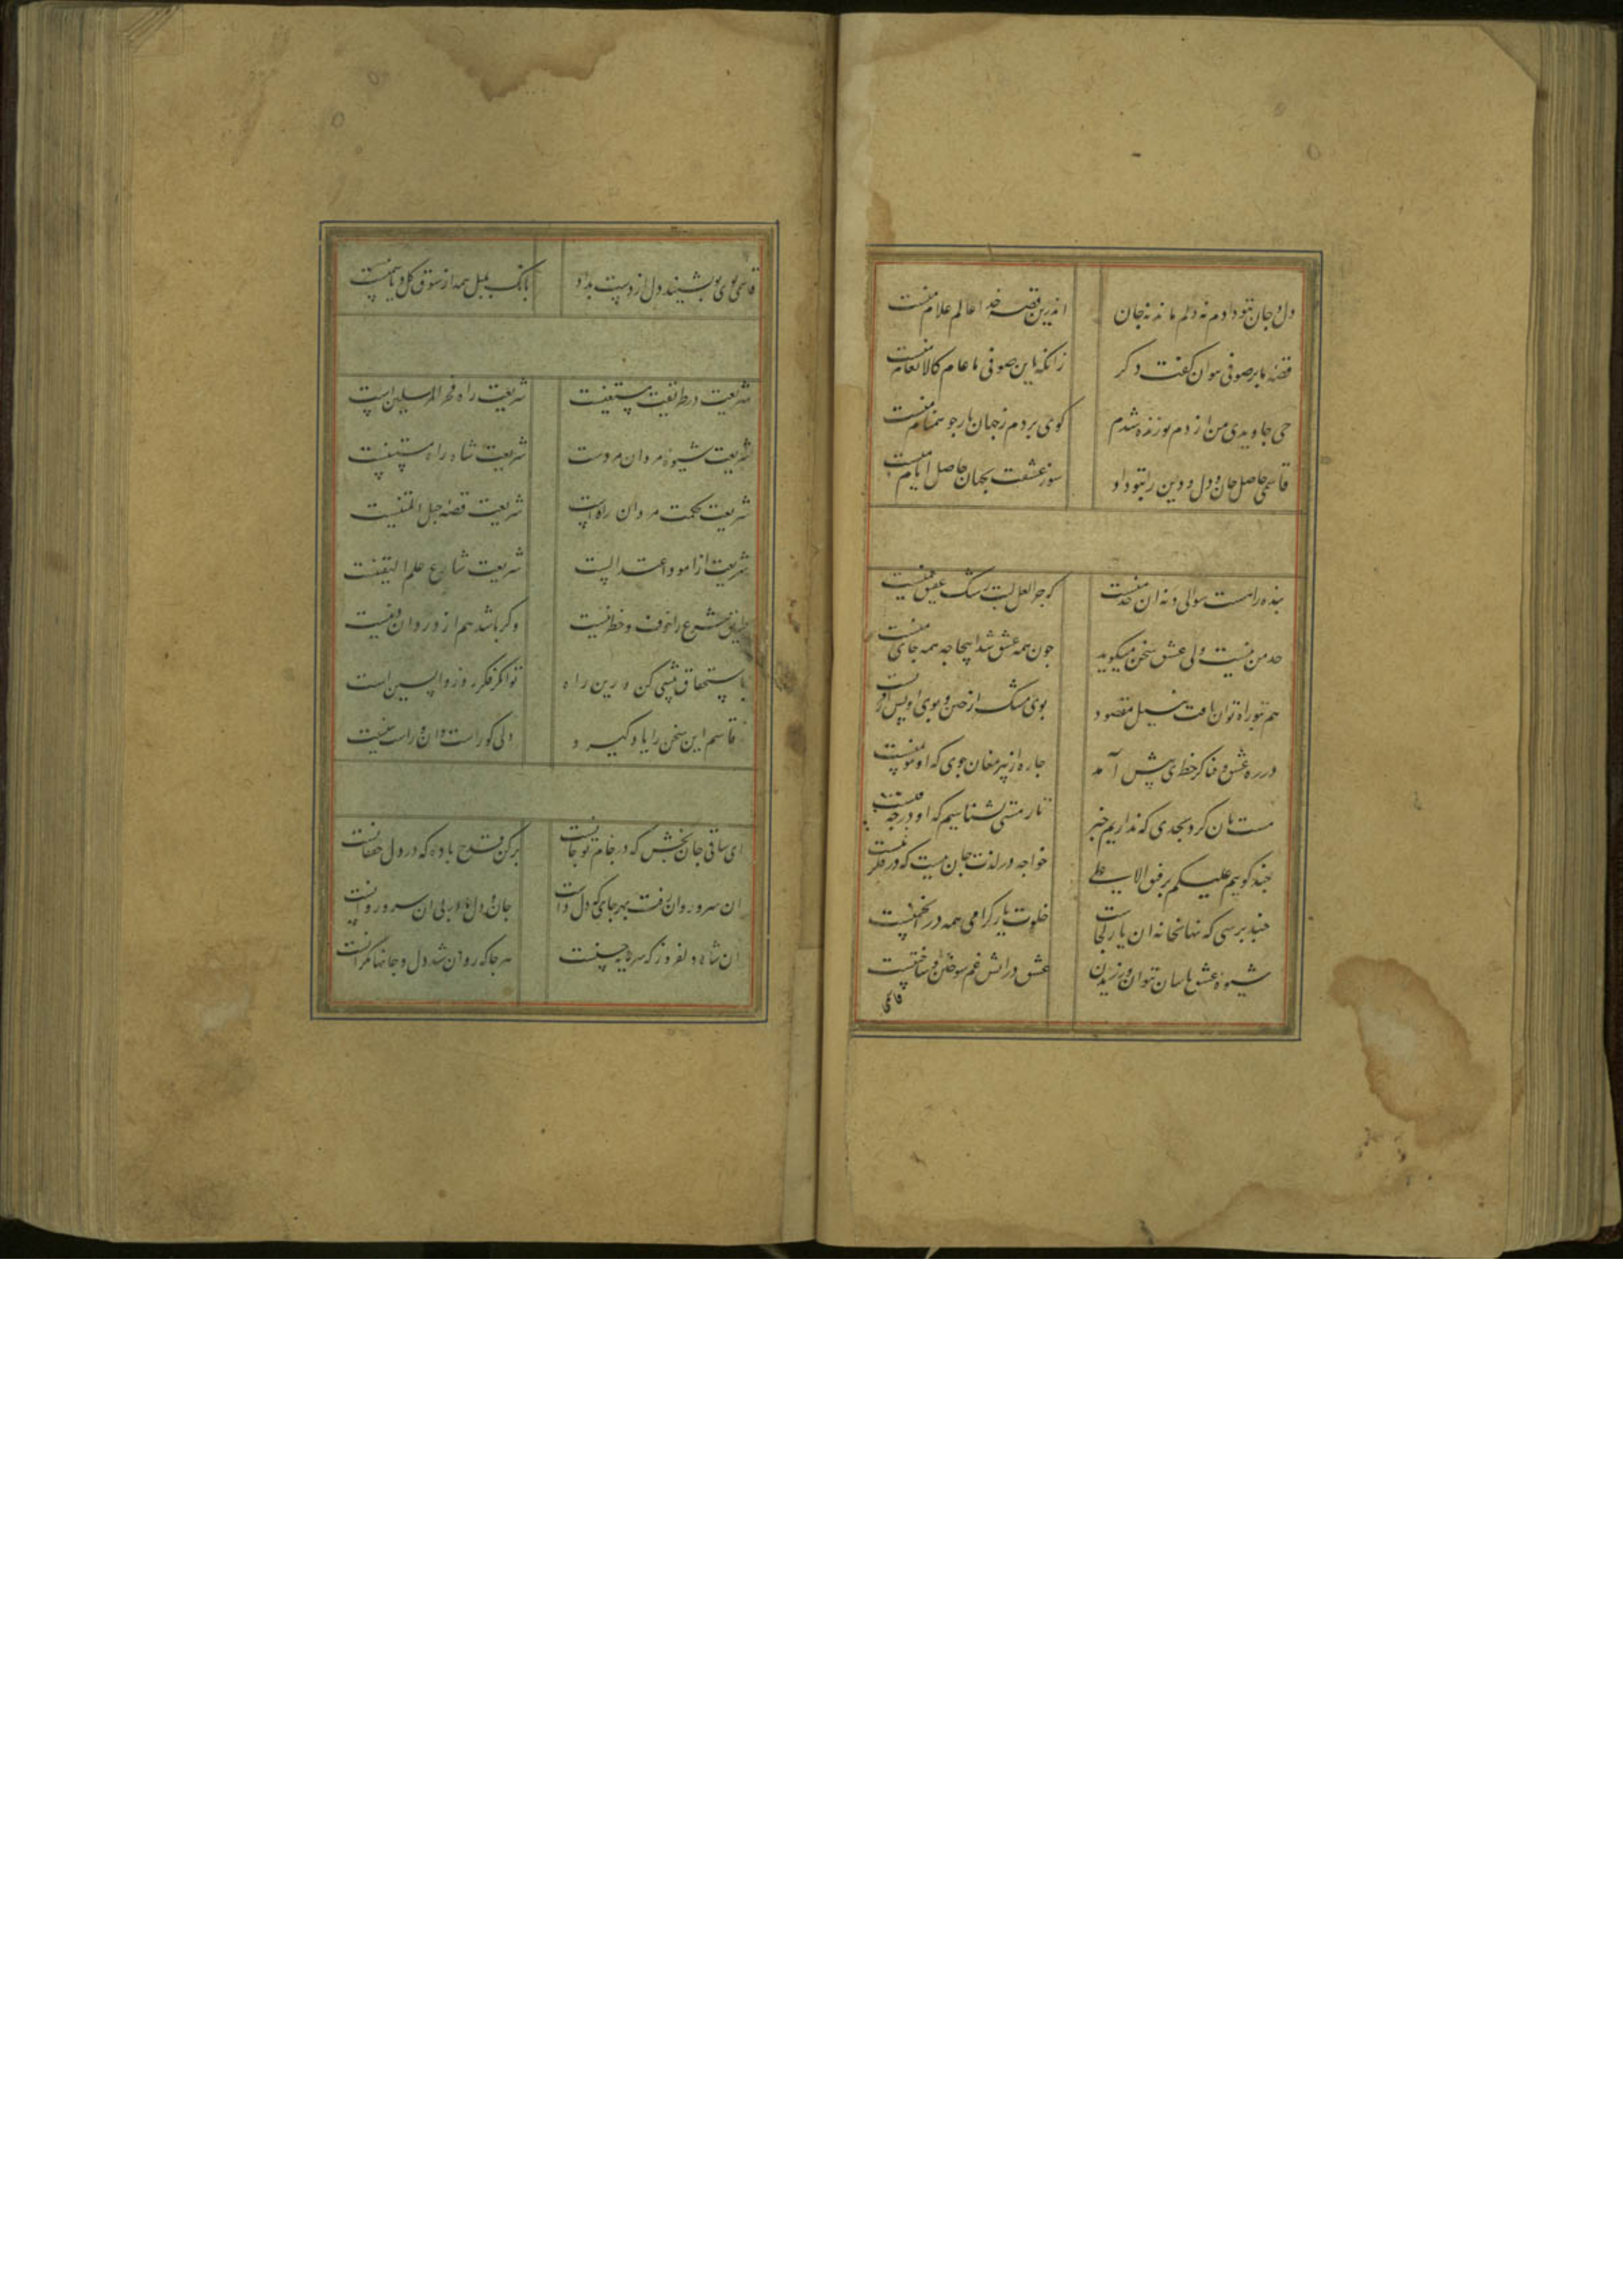 دل و جان بتو دادم نه دلم ماند نه جان اندرین قصه خدا عالم علام منست
قصهٔ ما بر صوفی نتوان گفت دکر زانکه این صوفی ما عام کالانعام منست
حی جاویدی من از دم تو زنده شدم کوی بردم زجهان
قاسمی حاصل جان و دل و دین را بتو داد سوز عشقت بجهان حاصل ایام منست
بنده را هست سوالی و نه آن حد منست که چرا لعل لبت رشک عقیق یمنست
حد من نیست ولی عشق سخن میکوید چون همه عشق شد اینجا چه همه جای منست
هم بتو راه توان یافت بسیل مقصود بوی مشک از ختن و بوی اویس از قرنست
در ره عشق و فنا کر خطری پیش آمد چاره از پیر مغان جوی که او موتمنست
مست مان کرد بحدی که نداریم خبر تا ز مستی نشناسیم که او در چه فنست
چند کوییم علیکم برفیق الاعلی خواجه در لذت جان نیست که در فکر تنست
چند پرسی که نهانخانه آن یار کجاست خلوت یار کرامی همه در انجمنست
شیوهٔ عشق باسان نتوان ورزیدن عشق در اتش غم سوختن و ساختنست
قاسمی
قاسمی بوی تو بشنید دل از دست بداد بانک بلبل همه از شوق کل و یاسمنست
شریعت در طریقت مستقیمست شریعت راه فخر المرسلین است
شریعت شیوهٔ مردان مردست شریعت شاه راه مستبینست
شریعت حکمت مردان راه است شریعت قصهٔ حبل المتینست
شریعت از امور اعتدالست شریعت شارع علم الیقینست
طریق شرع را خوف و خطر نیست وکر باشد هم از دزدان دینست
باستحقاق پیشی کن درین راه ترا کر فکر روز واپسین است
ز قاسم این سخن را یاد کیرد دلی کو راست دان و راست بینست
ای ساقی جان بخش که در جام تو جانست پر کن قدح باده که در دل خفقانست
آن سرو روان رفت بهر جای که دل خواست جان و دل ما در پی آن سرو روانست
آن شاه دلفروز که سرمایه حسنست هر جا که روان شد دل و جانها نکرانست